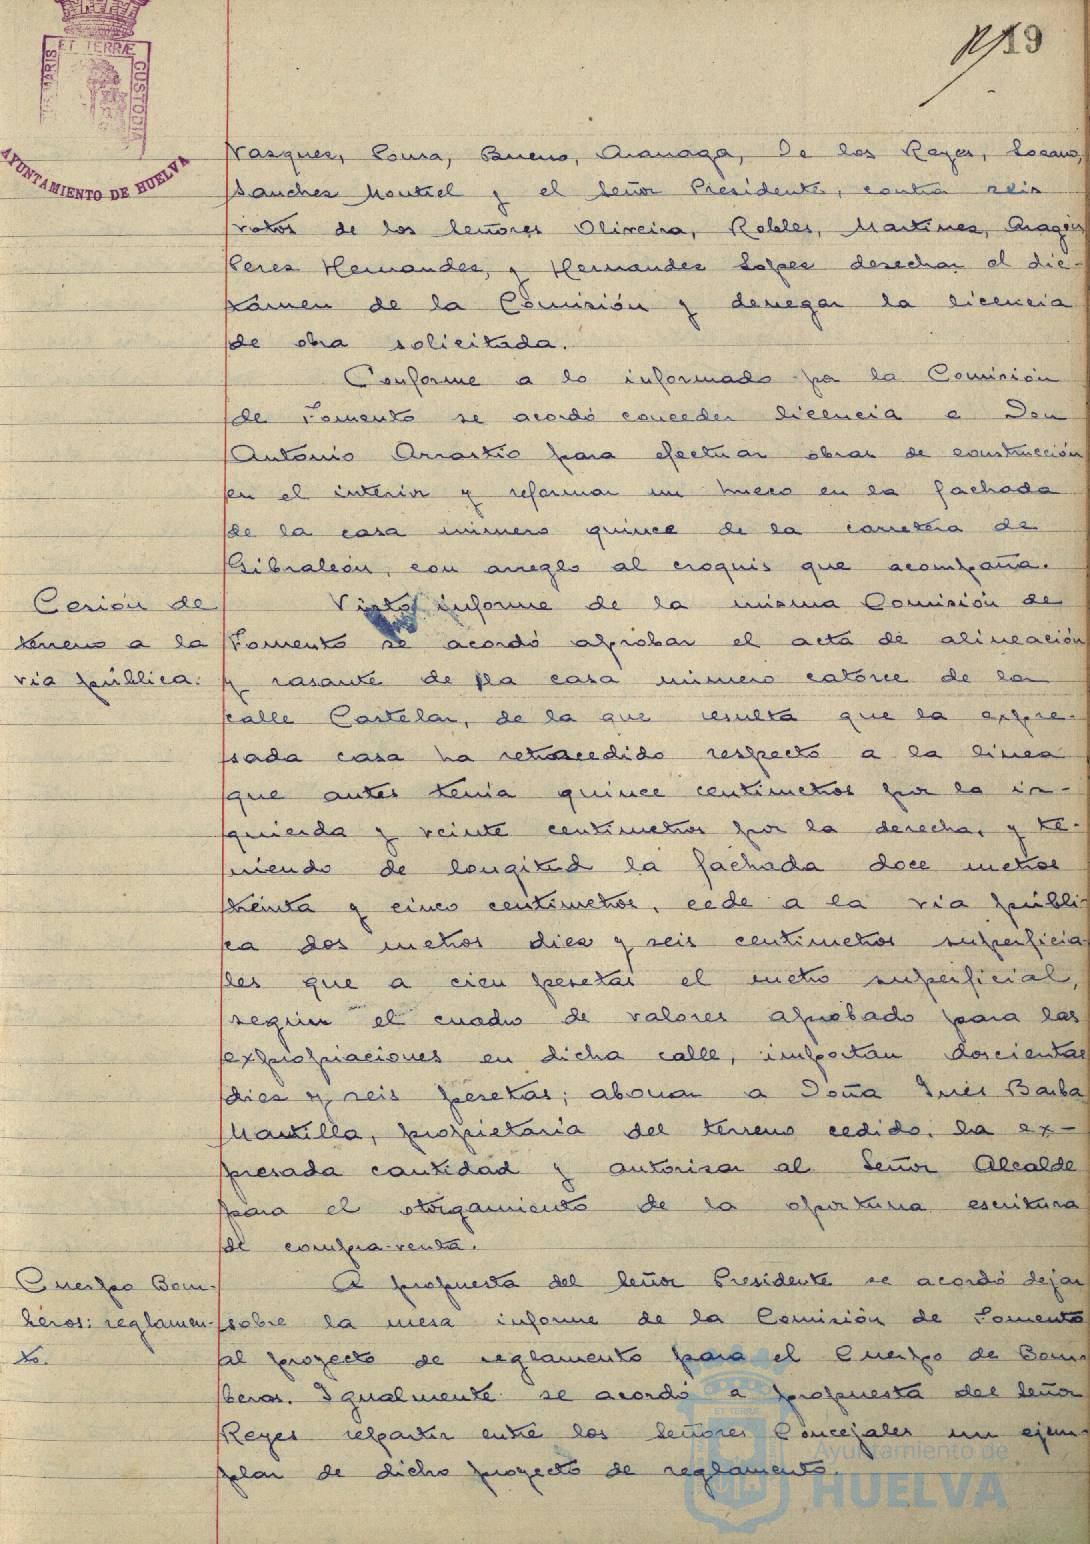 19
PORTUS MARIS ET TERRÆ CUSTODIA
AYUNTAMIENTO DE HUELVA
Vazquez, Sousa, Bueno, Aranaga, De los Reyes, Lozano,
Sanchez Montiel y el Señor Presidente, contra seis
votos de los Señores Oliveira, Robles, Martinez, Aragón
Perez Hernandez, y Hernandez Lopez desechar el dic-
támen de la Comisión y denegar la licencia
de obra solicitada.
Conforme a lo informado por la Comisión
de Fomento se acordó conceder licencia a Don
Antonio Arrastio para efectuar obras de construcción
en el interior y reformar un hueco en la fachada
de la casa número quince de la carretera de
Gibraleón, con arreglo al croquis que acompaña.
Cesión de
terreno a la
vía pública.
Visto informe de la misma Comisión de
Fomento se acordó aprobar el acta de alineación
y rasante de la casa número catorce de la
calle Castelar, de la que resulta que la expre-
sada casa ha retrocedido respecto a la linea
que antes tenia quince centimetros por la iz-
quierda y veinte centimetros por la derecha, y te-
niendo de longitud la fachada doce metros
treinta y cinco centimetros, cede a la via públi-
ca dos metros diez y seis centimetros superficia-
les que a cien pesetas el metro superficial,
según el cuadro de valores aprobado para las
expropiaciones en dicha calle, importan doscientas
diez y seis pesetas; abonar a Doña Inés Barba
Mantilla, propietaria del terreno cedido, la ex-
presada cantidad y autorizar al Señor Alcalde
para el otorgamiento de la oportuna escritura
de compra-venta.
Cuerpo Bom-
beros: reglamen-
to.
A propuesta del Señor Presidente se acordó dejar
sobre la mesa informe de la Comisión de Fomento
al proyecto de reglamento para el Cuerpo de Bom-
beros. Igualmente se acordó a propuesta del Señor
Reyes repartir entre los Señores Concejales un ejem-
plar de dicho proyecto de reglamento.
Ayuntamiento de
HUELVA